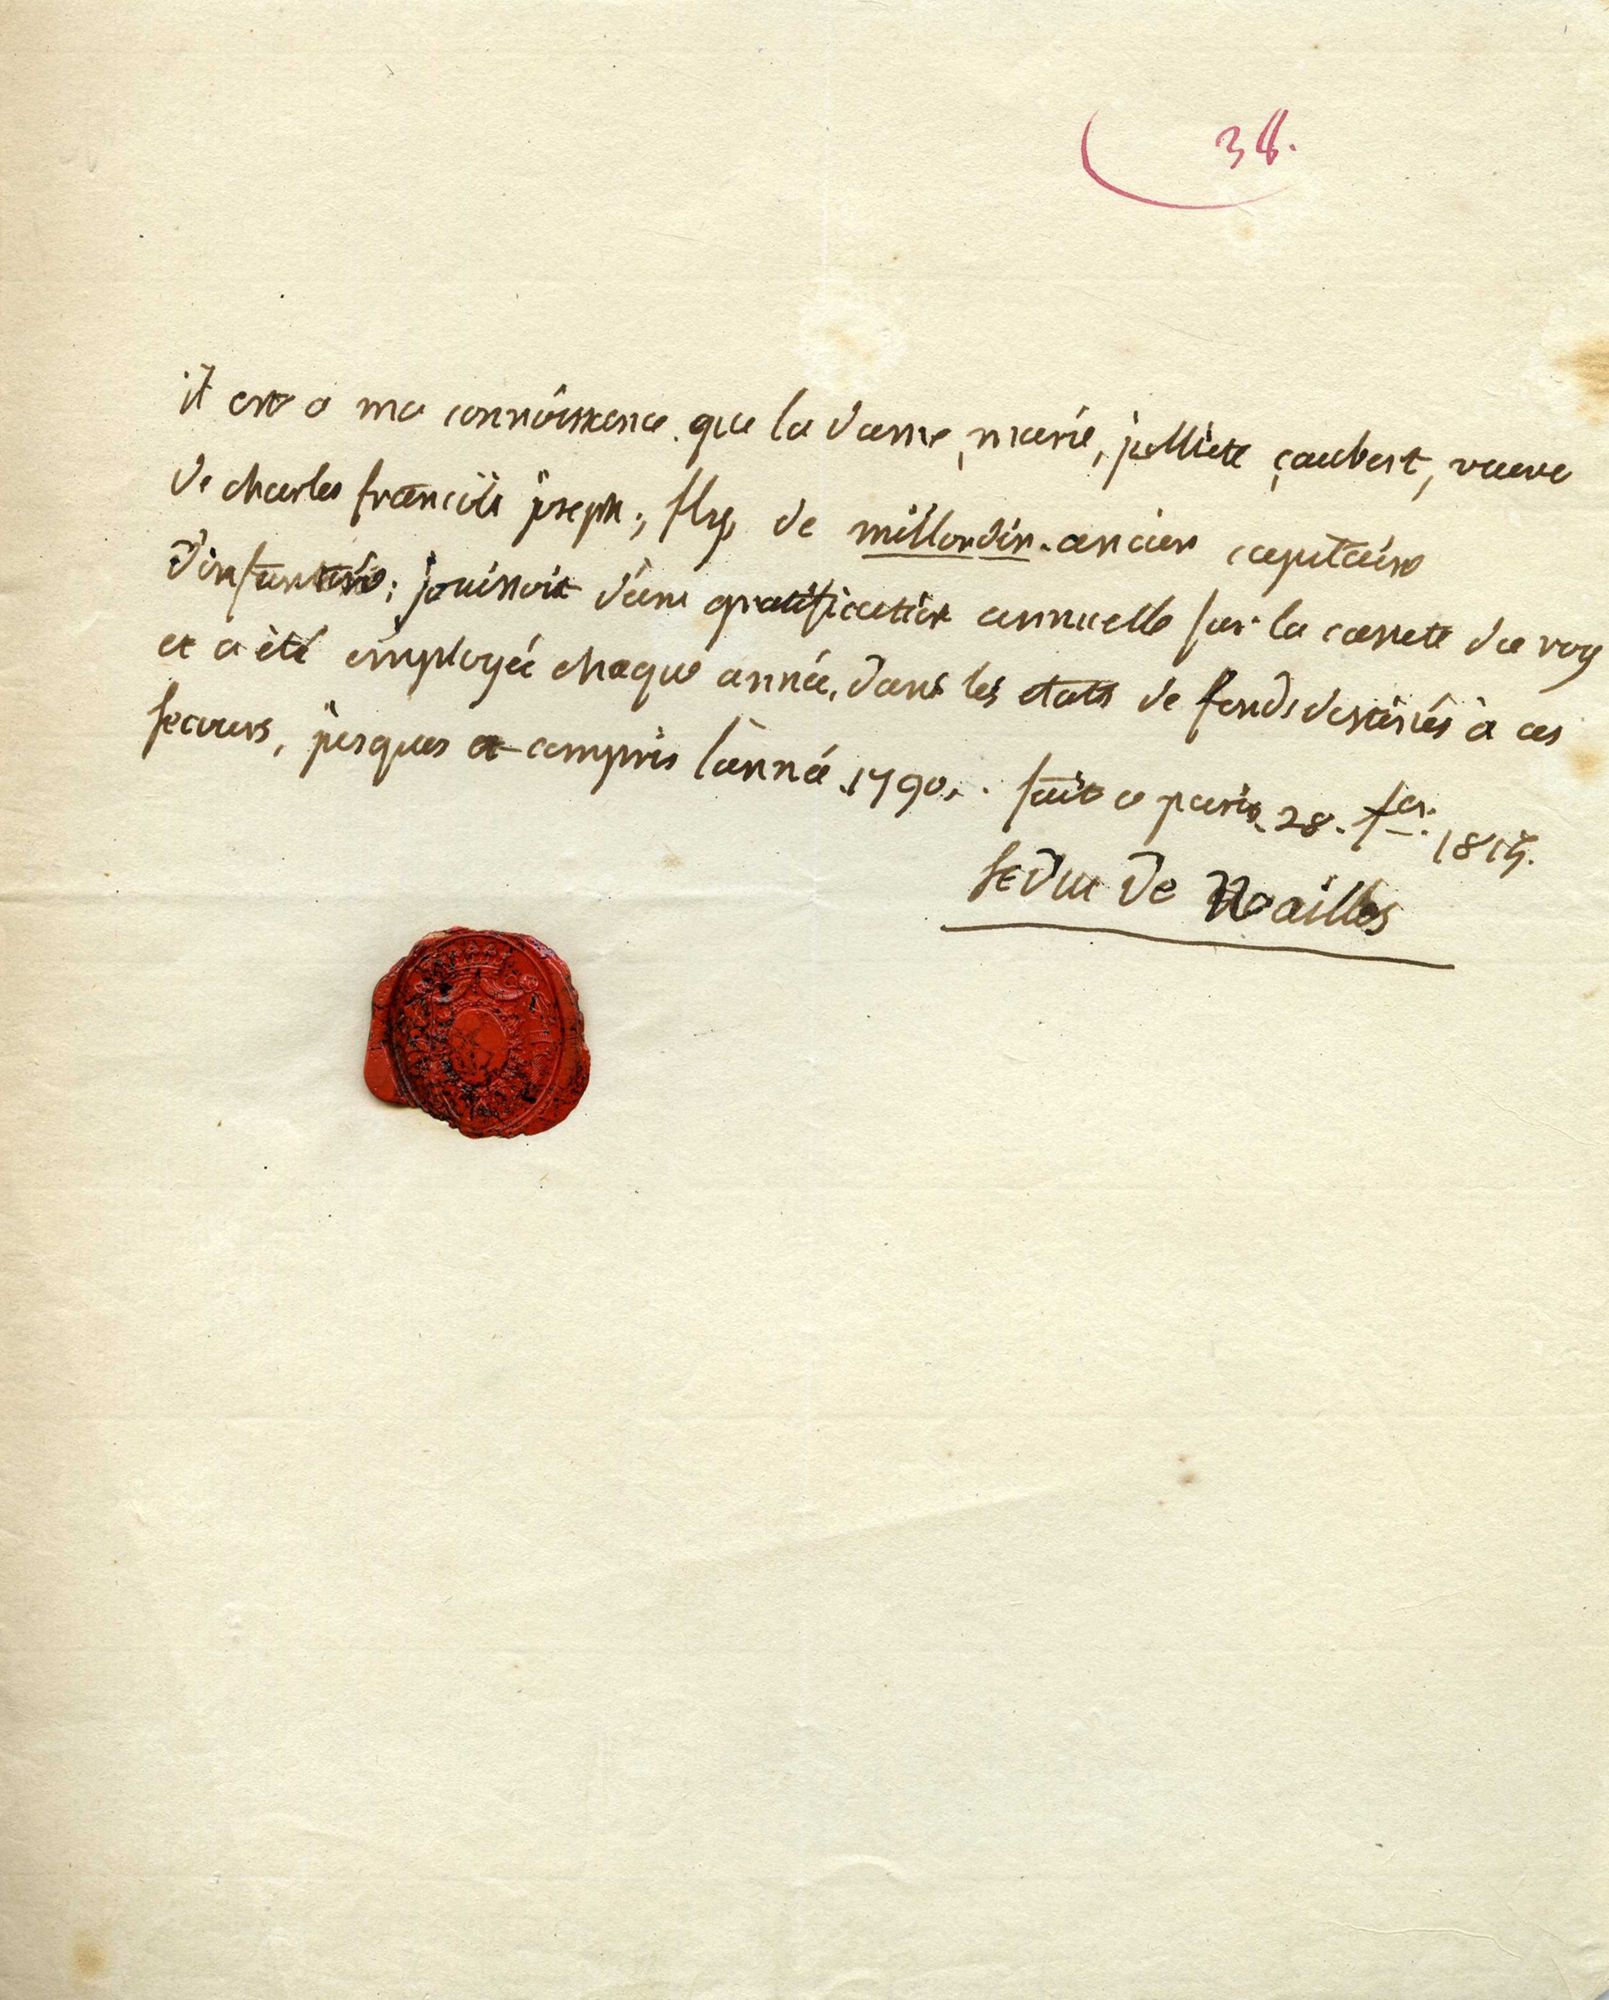 38.
il est a ma connoissance que la dame, marie, julliete, çaubert, veuve
de charles françois joseph, de millordin. ancien capitaine
d'infanterie; jouissoit d'une gratification annuelle sur la cassete du roy
et a été employée chaque année, dans les etats de fonds destinés à ces
secours, jusques et compris l'année 1790. fait a paris 28. fer. 1815.
le duc de Noailles